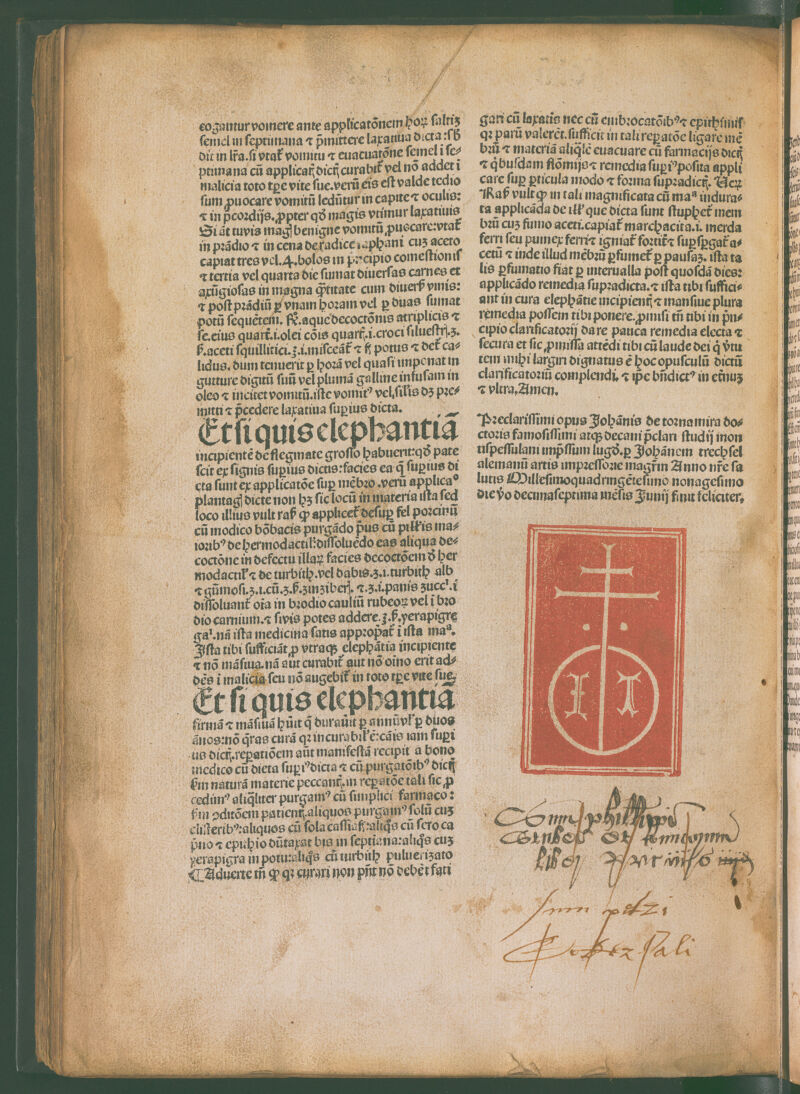 cogantur vomere ante applicatõnem hoꝝ saltiꝫ
semel in septimana ⁊ p̄mittere laxatiua dicta:
semel i se⸗
ptimana cũ vel nõ addet i
malicia toto tp̄e vite sue.verũ est valde tedio
sum ꝓuocare vomitũ leduntur in capite ⁊ oculis:
⁊ in p̄cordijs.ꝓpter qđ magis vtimur laxatiuis
Si aũt tu vis magꝭ benigne vomitũ ꝓuocare:
in prãdio ⁊ in cena de radice raphani cuꝫ aceto
capiat tres vel.4.bolos in p̄ncipio comestionis
⁊ tertia vel quarta die sumat diuersas carnes et
axũgiosas in magna q̃titate cum diuersꝭ vinis:
⁊ post prãdiũ ꝑ vnam horam vel ꝑ duas sumat
potũ sequẽtem. aque decoctõnis atriplicis ⁊
quart̃.i.olei cõis quart̃.i.croci siluestrꝭ.ʒ.
aceti squillitici.ʒ.i.misceãt̃ ⁊ potus ⁊ ca⸗
lidus.dum tenuerit ꝑ horã vel quasi imponat in
gutture digitũ suũ vel plumã galline infusam in
oleo ⁊ incitet vomitũ.iste vomitꝰ vel silis dꝫ pre⸗
mitti ⁊ p̄cedere laxatiua supius dicta.
Et si quis elephantiã
incipientẽ de flegmate grosso habuerit:qđ pate
scit ex signis supius dictis:facies ea q̃ supius di
cta sunt ex applicatõe sup mẽbro.verũ applica⁰
plantagꝭ dicte non hꝫ sic locũ in materia ista sed
loco illius vult ꝙ applicet̃ desup fel porcinũ
cũ modico bõbacis purgãdo pꝰus cũ ma⸗
ioribꝰ de hermodactil':dissoluẽdo eas aliqua de⸗
coctõne in defectu illaꝝ facies decoctõem đ her
modactil' ⁊ de turbith.vel dabis.ʒ.i.turbith alb
⁊ gũmosi.ʒ.i.cũ.ʒ.ß.zinziberꝭ.⁊.ʒ.i.panis zucc'.i
dissoluant̃ oĩa in brodio cauliũ rubeoꝝ vel i bro
dio carnium.⁊ si vis potes addere.ʒ.ß.yerapigre
ga'.nã ista medicina satis appropat̃ i ista maᵃ.
Ista tibi sufficiãt ꝓ vtraqꝫ elephãtia incipiente
⁊ nõ mãsiua.nã aut curabit̃ aut nõ oĩno erit ad⸗
dẽs i malicia seu nõ augebit̃ in toto tp̄e vite sue.
Et si quis elephantiã
firmã ⁊ mãsiuã hũit q̃ durauit ꝑ annũ vl' ꝑ duos
ãnos:nõ q̃ras curã qꝛ incurabil' ẽ:cãis iam supi
us dictꝭ.repatiõem aũt manifestã recipit a bono
medico cũ dieta supiꝰ dicta ⁊ cũ purgatõibꝰ dictꝭ
naturã materie peccantꝭ.in repatõe tali sic ꝓ
cedimꝰ aliq̃liter purgamꝰ cũ simplici farmaco:
ↄditõem patientꝭ.aliquos purgamꝰ solũ cuꝫ
clisteribꝰ:aliquos cũ sola cassiafꝭ:aliq̃s cũ sero ca
p̃no ⁊ epithio dũtaxat bis in septiana:aliq̃s cuꝫ
yerapigra in potu:aliq̃s cũ turbith puluerizato
¶ Aduerte tñ ꝙ qꝛ curari non pñt nõ debẽt fati
gari cũ laxatis nec cũ embrocatõibꝰ ⁊ epithimis
qꝛ parũ valerẽt.sufficit in tali repatõe ligare mẽ
brũ ⁊ materiã aliq̃lẽ euacuare cũ farmacijs dictꝭ
⁊ q̃busdam flõmijs ⁊ remedia supiꝰ posita appli
care sup pticula modo ⁊ forma supradictꝭ.
vult ꝙ in tali magnificata cũ maᵃ indura⸗
ta applicãda de ill' que dicta sunt stuphet̃ mem
brũ cuꝫ fumo aceti.capiat̃ marchacita.i.merda
ferri seu pumex ferri ⁊ igniat̃ fortit̃ ⁊ supspgat̃ a⸗
cetũ ⁊ inde illud mẽbrũ pfumet̃ ꝑ pausaꝫ.ista ta
lis pfumatio fiat ꝑ interualla post quosdã dies:
applicãdo remedia supradicta.⁊ ista tibi suffici⸗
ant in cura elephãtie incipientꝭ ⁊ mansiue plura
remedia possem tibi ponere.ꝓmisi tñ tibi in p̃n⸗
cipio clarificatorij dare pauca remedia electa ⁊
secura et sic ꝓmissa attẽdi tibi cũ laude dei q̃ v̾tu
tem mihi largiri dignatus ẽ hoc opusculũ dictũ
clarificatoriũ complendi.⁊ ip̃e bñdictꝰ in et̾nuꝫ
⁊ vltra.Amen.
Preclarissimi opus Johãnis de tornamira do⸗
ctoris famosissimi atqꝫ decani p̃clari studij mon
tispessulam imp̃ssũm lugđ.ꝑ Johãnem trechsel
alemanũ artis impressorie mag̃rm Anno nr̃e sa
lutis Millesimoquadringẽtesimo nonagesimo
die ṽo decimaseptima mẽsis Junij finit feliciter.
I T
Sum philippi
liber
Sum petri